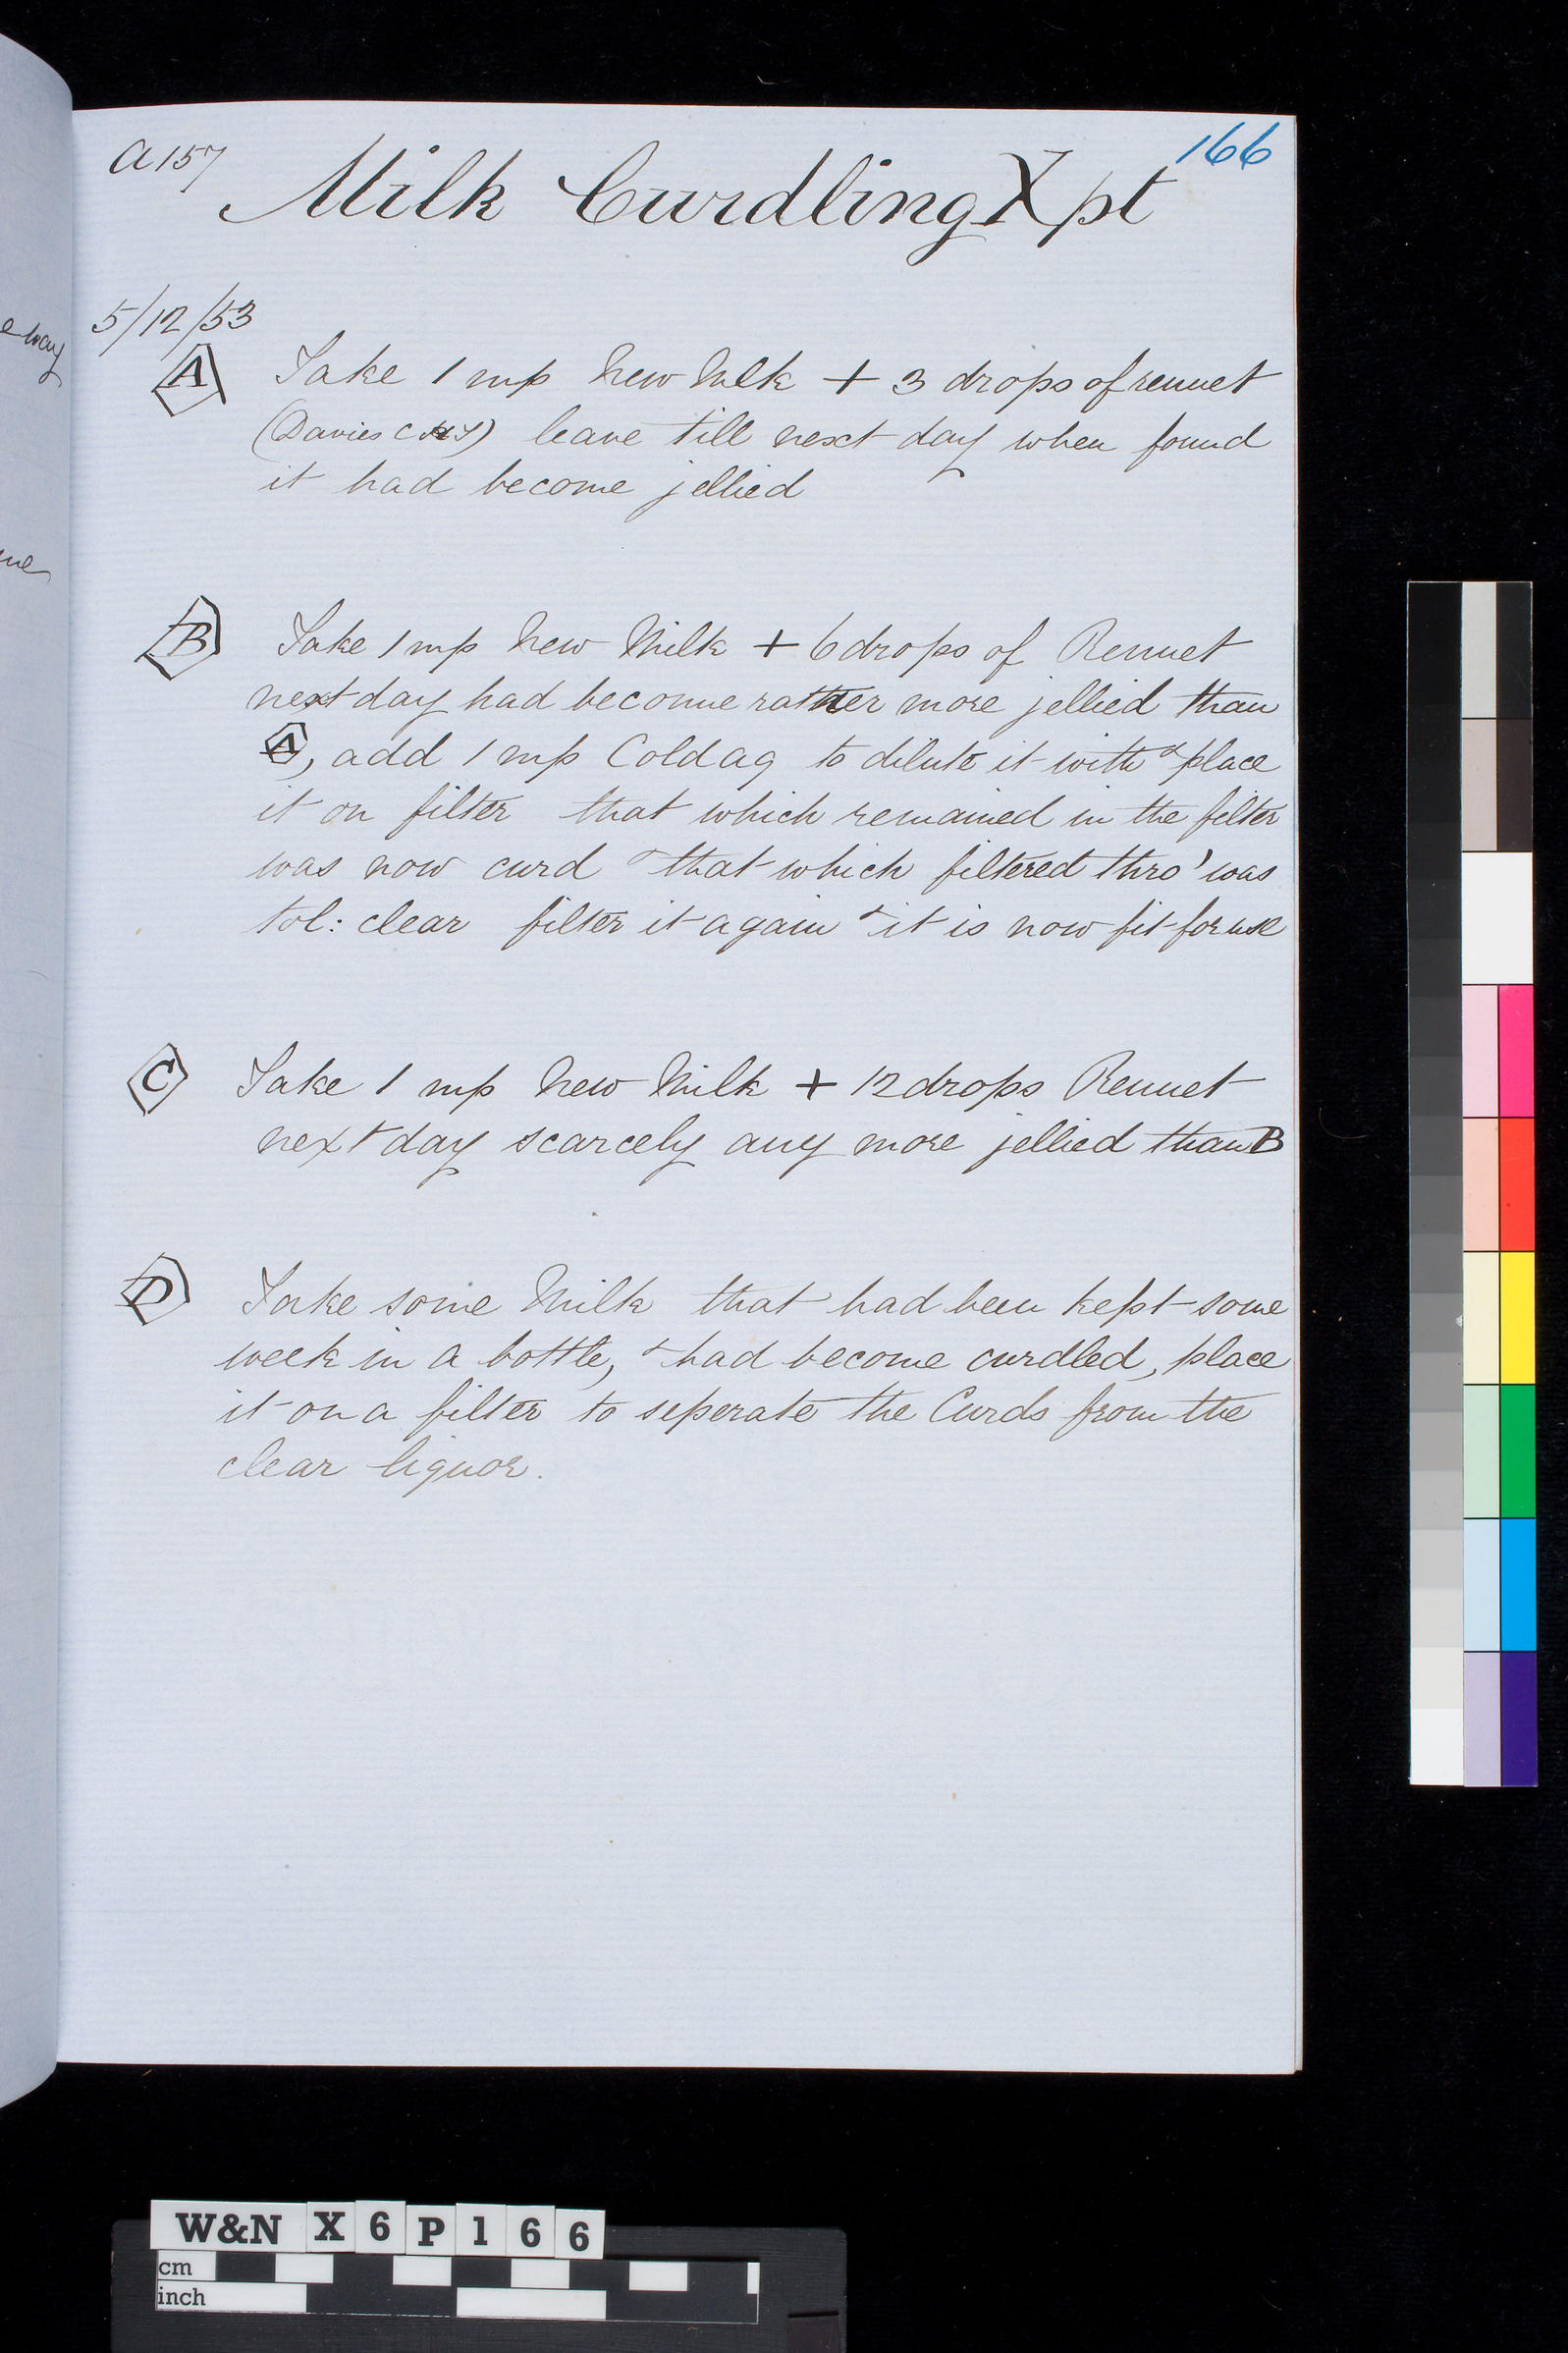 a 157
166
Milk Curdling Xpt
5/12/53
A Take 1 mp New Milk + 3 drops of rennet
(Davies leave till next day when found
it had become jellied
B Take 1 mp New Milk + 6 drops of Rennet
next day had become rather more jellied than
A, add 1 mp Cold aq to dilute it with & place
it on filter that which remained in the filter
was now curd & that which filtered thro' was
tol: clear filter it again & it is now fit for use
C Take 1 mp New Milk + 12 drops Rennet
next day scarcely any more jellied than B
D Take some Milk that had been kept some
week in a bottle, & had become curdled, place
it on a filter to seperate the Curds from the
clear liquor.
e way
W&N X6P166
cm
inch